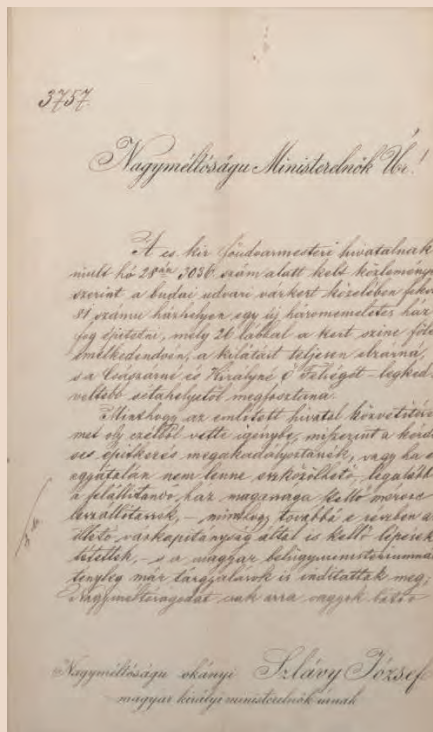 3757.
Nagyméltóságu Ministerelnök Úr!
A cs. kir. főudvarmesteri hivatalnak
mult hó 28án 3036. szám alatt kelt közleménye
szerint a budai udvari várkert közelében fekvő
81 számu házhelyen egy új háromemeletes ház
fog épitetni, mely 26 lábbal a kert szine fölé
emelkedendvén, a kilátást teljesen elzárná,
s a Császárné és Királyné ő Felségét legked
veltebb sétahelyétől megfosztaná.
Minthogy az emlitett hivatal közvetitése
met oly czélból vette igénybe, miszerint a kérdé
ses épitkezés megakadályoztassék, vagy ha e
egyátalán nem lenne eszközölhető, legalább
a felállitandó ház magassága kellő mérvre
leszállittassék, – minthogy továbbá e részben a
illető várkapitányság által is kellő lépések
tétettek, – s a magyar belügyministeriumma
tényleg már tárgyalások is indittattak meg,
Nagyméltóságodat csak arra vagyok bátor
Nagyméltóságu okányi Szlávy József
magyar királyi ministerelnök úrnak